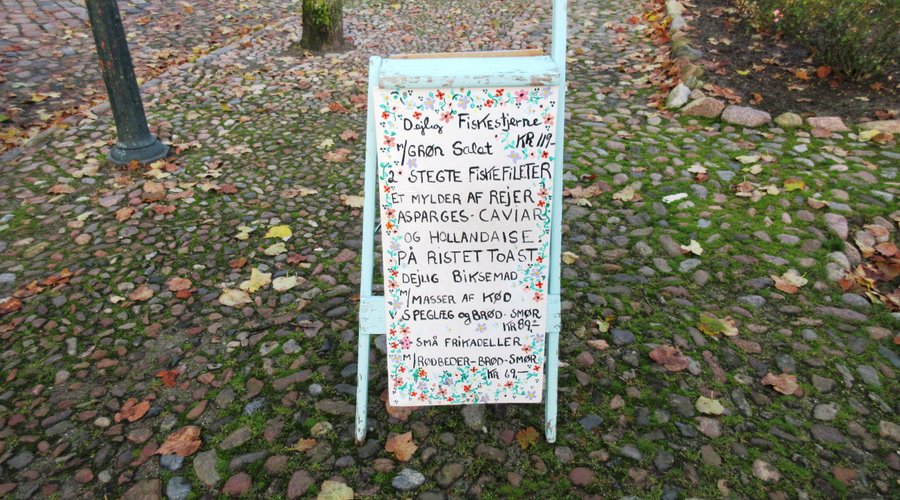 Dejlig FISKEstjerne
KR 119-
m/GRØN Salat
2 STEGTE FISKEFILETER
ET MYLDER AF REJER
ASPARGES-CAVIAR
OG HOLLANDAISE.
PÅ RISTET TOAST.
DEJLIG BIKSEMAD
m/MASSER AF KØD
SPEGLÆG og BRØD-SMØR
KR 89,-
SMÅ FRIKADELLER
m/RØDBEDER-BRØD-SMØR
KR 69,-